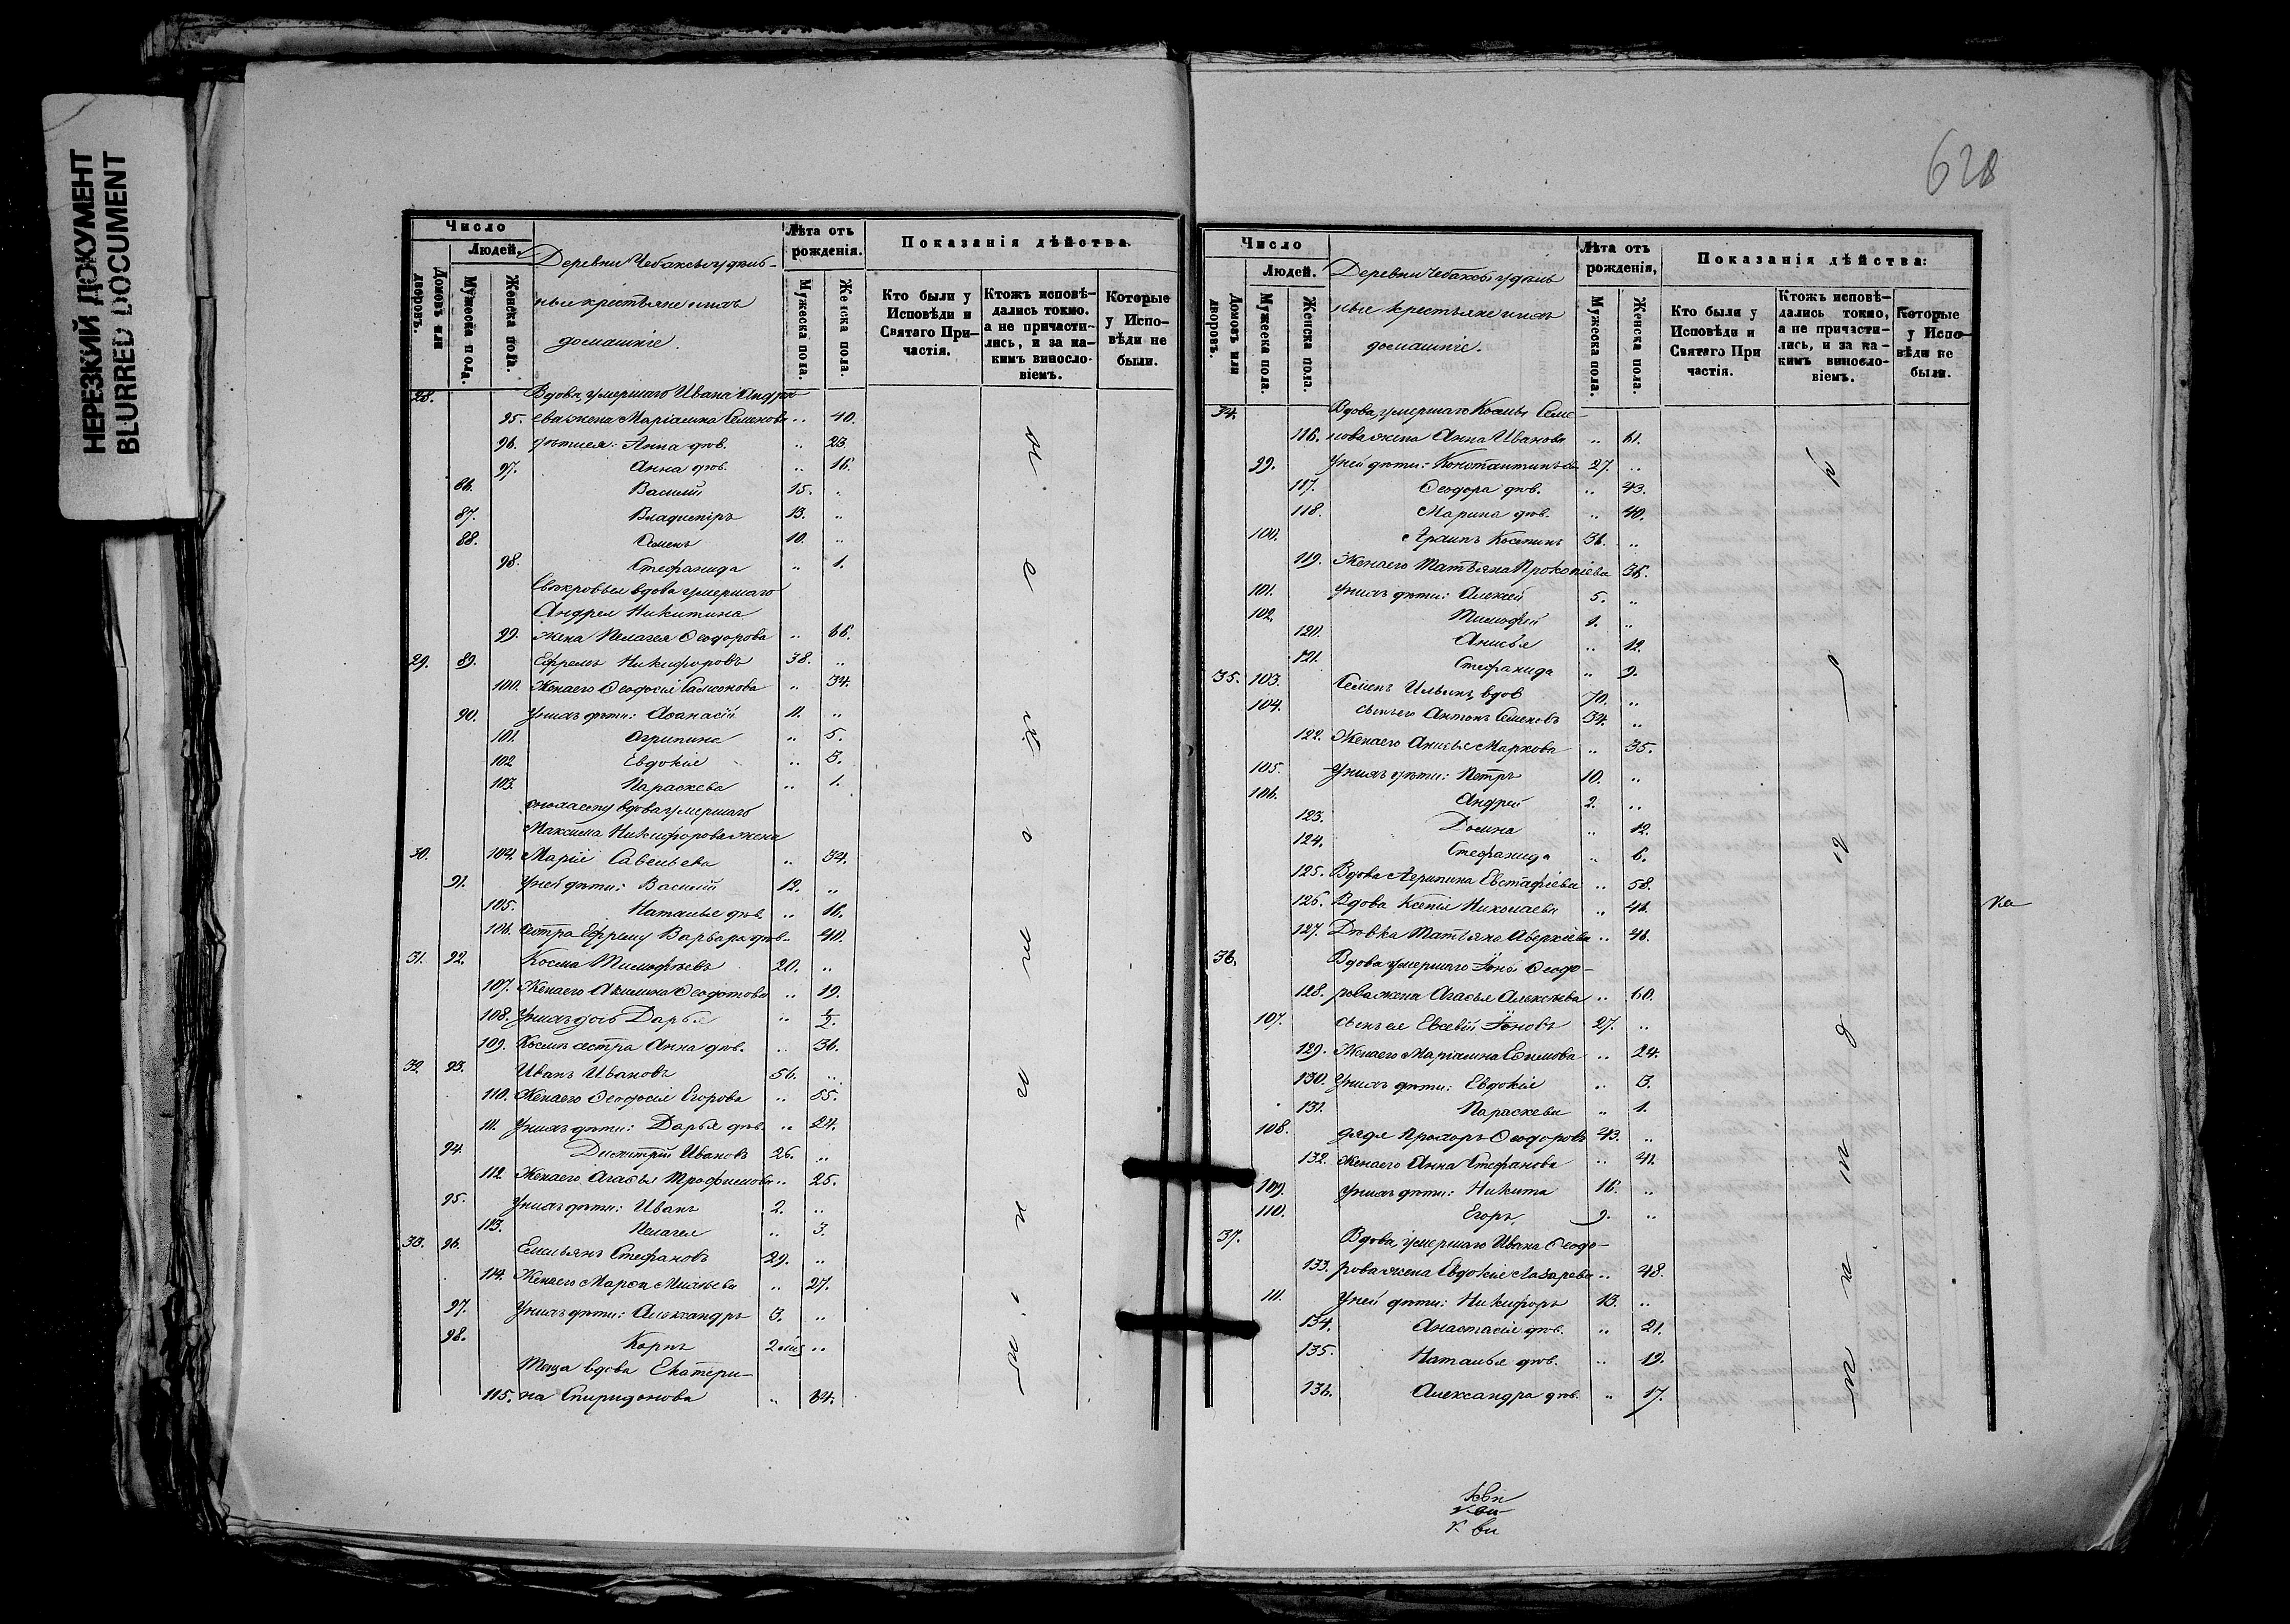 НЕРЕЗКИЙ ДОКУМЕНТ
BLURRED DOCUMENT
Число
Людей.
Домовъ или дворовъ.
Мужеска пола.
Женска пола.
Деревни Чебаксы удѣль-
ные крестьяне и ихъ
домашніе.
Лѣта отъ рожденія.
Мужеска пола.
Женска пола.
Показанія дѣйства.
Кто были у Исповѣди и Святаго При-частія.
Ктожъ исповѣ-дались токмо. а не причасти-лись, и за ка-кимъ винословіемъ.
Которые у Испо-вѣди не были.
28. Вдова, умершаго Ивана Андре-
95. ева жена Маріамна Семенова .. 40.
96. дѣти ея: Анна дѣв. .. 23.
97. Анна дѣв. .. 16.
86. Василій 15. ..
87. Владиміръ 13. ..
88. Семенъ 10. ..
98. Стефанида .. 1.
Свекровь ея вдова умершаго
Андрея Никитина
99. жена Пелагея Ѳеодорова .. 66.
29. 89. Ефремъ Никифоровъ 38. ..
100. Жена его Ѳеодосія Самсонова .. 34.
90. У нихъ дѣти: Аѳанасій 11. ..
101. Агрипина .. 5.
102. Евдокія .. 3.
103. Параскева .. 1.
вдова умершаго
Максима Никифорова жена
30. 104. Марія Савельева .. 34.
91. У ней дѣти: Василій 12. ..
105. Наталья дѣв. .. 16.
106. Сестра Ефрему Варвара дѣв. .. 40.
31. 92. Косма Тимофѣевъ 20. ..
107. Жена его Акилина Ѳеодотова .. 19.
108. У нихъ дочь Дарья .. ½.
109. Космѣ сестра Анна дѣв. .. 36.
32. 93. Иванъ Ивановъ 56. ..
110. Жена его Ѳеодосія Егорова .. 55.
111. У нихъ дѣти: Дарья дѣв. .. 24.
94. Димитрій Ивановъ 26. ..
112. Жена его Агаѳья Трофимова .. 25.
95. У нихъ дѣти: Иванъ 2. ..
113. Пелагея .. 3.
33. 96. Емельянъ Стефановъ 29. ..
114. Жена его Марѳа Михѣева .. 27.
97. У нихъ дѣти: Александръ 3. ..
98. Карпъ 2 ..
Теща вдова Екатери-
115. на Спиридонова .. 64.
628
Число
Людей.
Домовъ или дворовъ.
Мужеска пола.
Женска пола.
Деревни Чебаксы удѣль-
ные крестьяне и ихъ
домашніе.
Лѣта отъ рожденія,
Мужеска пола.
Женска пола.
Показанія дѣйства:
Кто были у Исповѣди и Святаго При частія.
Ктожъ исповѣ-дались токмо, а не причасти-лись, и за ка-кимъ винословіемъ.
Которые у Испо-вѣди не были.
34. Вдова, умершаго Космы Семе-
116. нова жена Анна Иванова .. 61.
99. У ней дѣти: Константинъ 27. ..
117. Ѳеодора дѣв. .. 43.
118. Марина дѣв. .. 40.
100. Космин 36. ..
119. Жена его Татьяна Прокопіева .. 36.
101. У нихъ дѣти: Алексей 5. ..
102. Тимофей 1. ..
120. Анисья .. 12.
121. Стефанида .. 9.
35. 103. Семенъ Ильинъ, вдов 70. ..
104. Сынъ его Антонъ Семеновъ 34. ..
122. Жена его Анисья Маркова .. 35.
105. У нихъ дѣти: Петръ 10. ..
106. Андрей 2. ..
123. Домна .. 12.
124. Стефанида .. 6.
125. Вдова Агрипина Евстафіева .. 58.
126. Вдова Ксенія Николаева .. 46.
127. Дѣвка Татьяна Аверкіева .. 46.
36. Вдова умершаго Іоны Ѳеодо-
128. рова жена Агаѳья Алексѣева .. 60.
107. Сынъ ея Евсевій Іоновъ 27. ..
129. Жена его Маріамна Ефимова .. 24.
130. У нихъ дѣти: Евдокія .. 3.
131. Параскева .. 1.
108. дядя Прохоръ Ѳеодоровъ 43. ..
132. Жена его Анна Стефанова .. 41.
109. У нихъ дѣти: Никита 16. ..
110. Егоръ 9. ..
37. Вдова, умершаго Ивана Ѳеодо-
133. рова жена Евдокія Лазарева .. 48.
111. У ней дѣти: Никифоръ 13. ..
134. Анастасія дѣв. .. 21.
135. Наталья дѣв. .. 19.
136. Александра дѣв. .. 17.